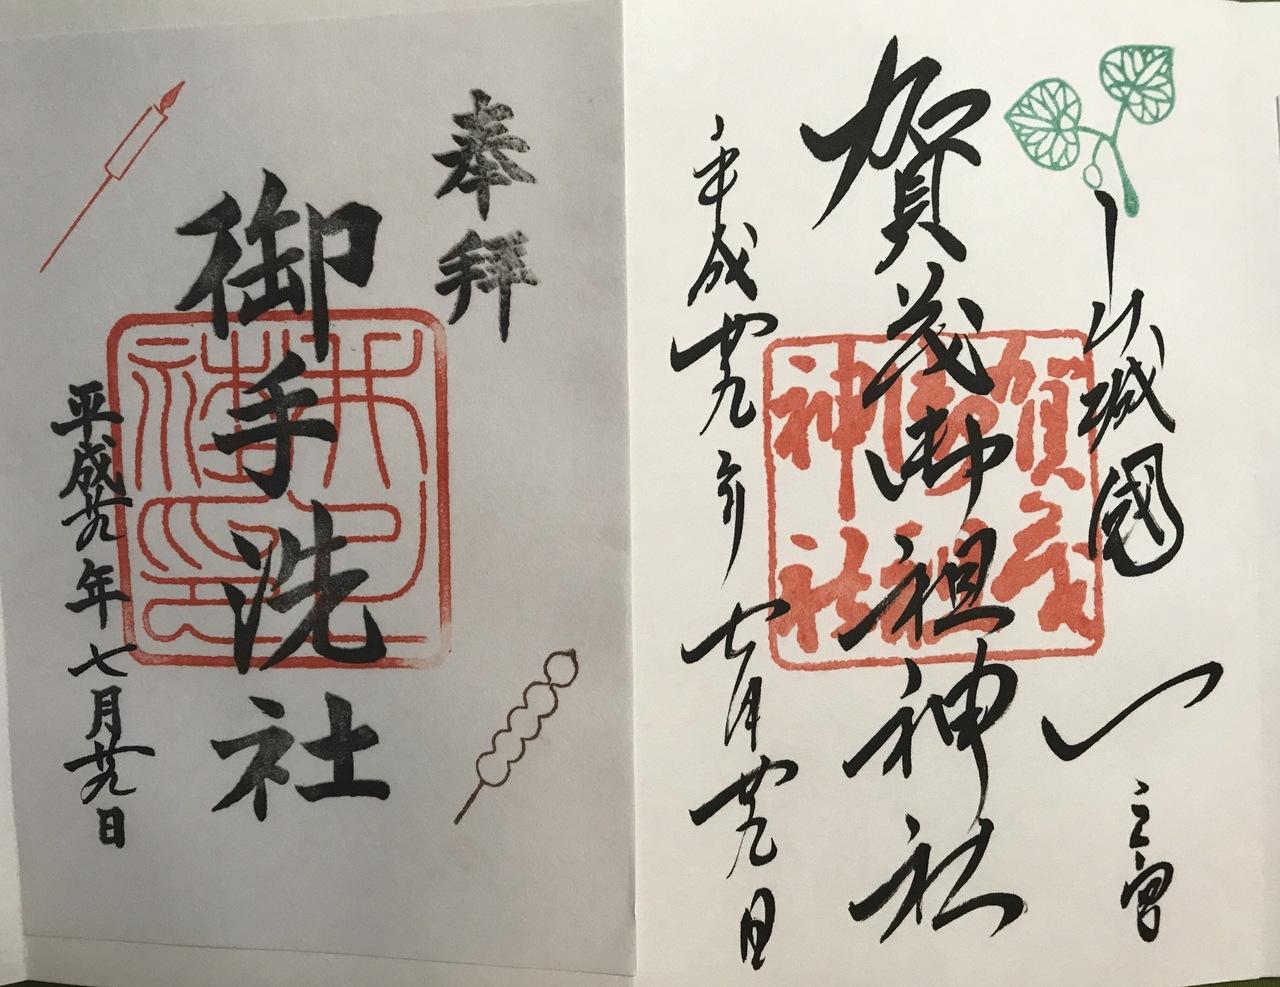 山城國一之宮
賀茂御祖神社
賀茂御祖神社
平成廿九年七月廿九日
奉拝
御手洗社
平成廿九年七月廿九日